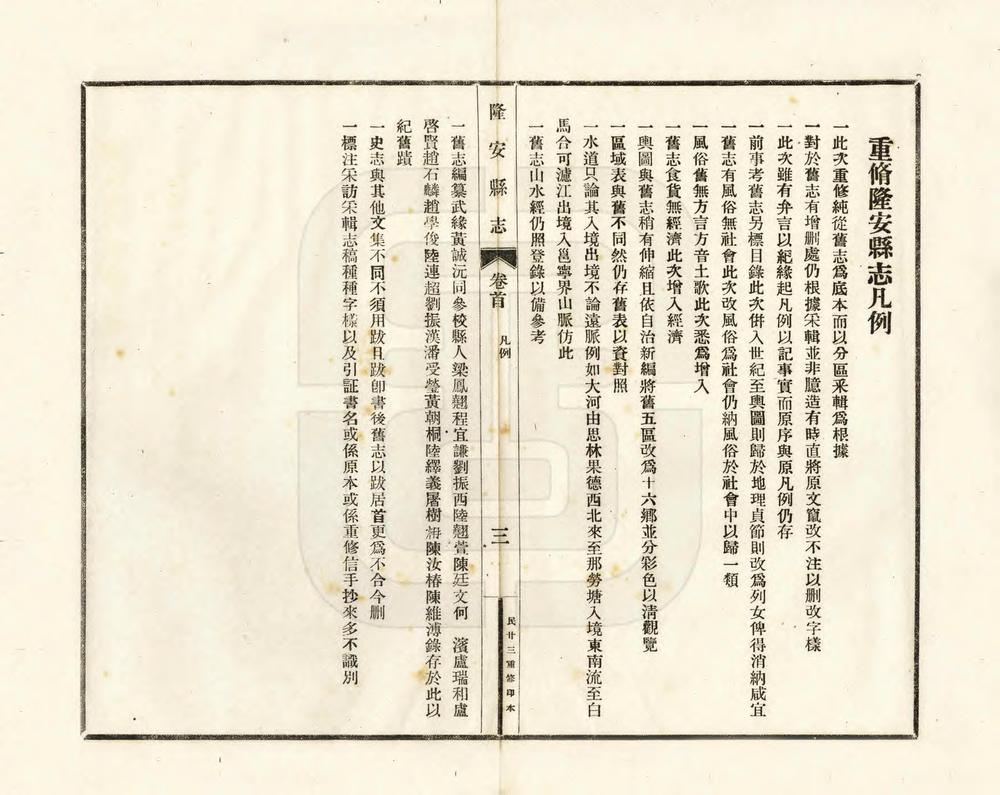 重脩隆安縣志凡例
一此次重修純從舊志爲底本而以分區釆輯爲根據
一對於舊志有增删處仍根據釆輯並非臆造有時直將原文竄改不注以删改字樣
一此次雖有弁言以紀緣起凡例以記事實而原序與原凡例仍存
一前事考舊志另標目錄此次併入世紀至輿圖則歸於地理貞節則改爲列女俾得消納咸宜
一舊志有風俗無社會此次改風俗爲社會仍納風俗於社會中以歸一類
一風俗舊無方言方音土歌此次悉爲增入
一舊志食貨無經濟此次增入經濟
一輿圖與舊志稍有伸縮且依自治新編將舊五區改爲十六鄉並分彩色以清觀覽
一區域表與舊不同然仍存舊表以資對照
一水道只論其入境出境不論遠脈例如大河由思林果德西北來至那勞塘入境東南流至白
馬合可瀘江出境入邕寧界山脈仿此
一舊志山水經仍照登錄以備參考
隆安縣志 卷首 凡例 三 民廿三重修印本
一舊志編纂武緣黃誠沅同參校縣人梁鳳翹程宜謙劉振西陸翹萱陳廷文何 濱盧瑞和盧
啓賢趙石麟趙學俊陸連超劉振漢潘受瑩黃朝桐陸繹義屠樹 陳汝椿陳維溥錄存於此以
紀舊蹟
一史志與其他文集不同不須用跋且跋卽書後舊志以跋居首更爲不合今删
一標注釆訪釆輯志稿種種字樣以及引証書名或係原本或係重修信手抄來多不識別